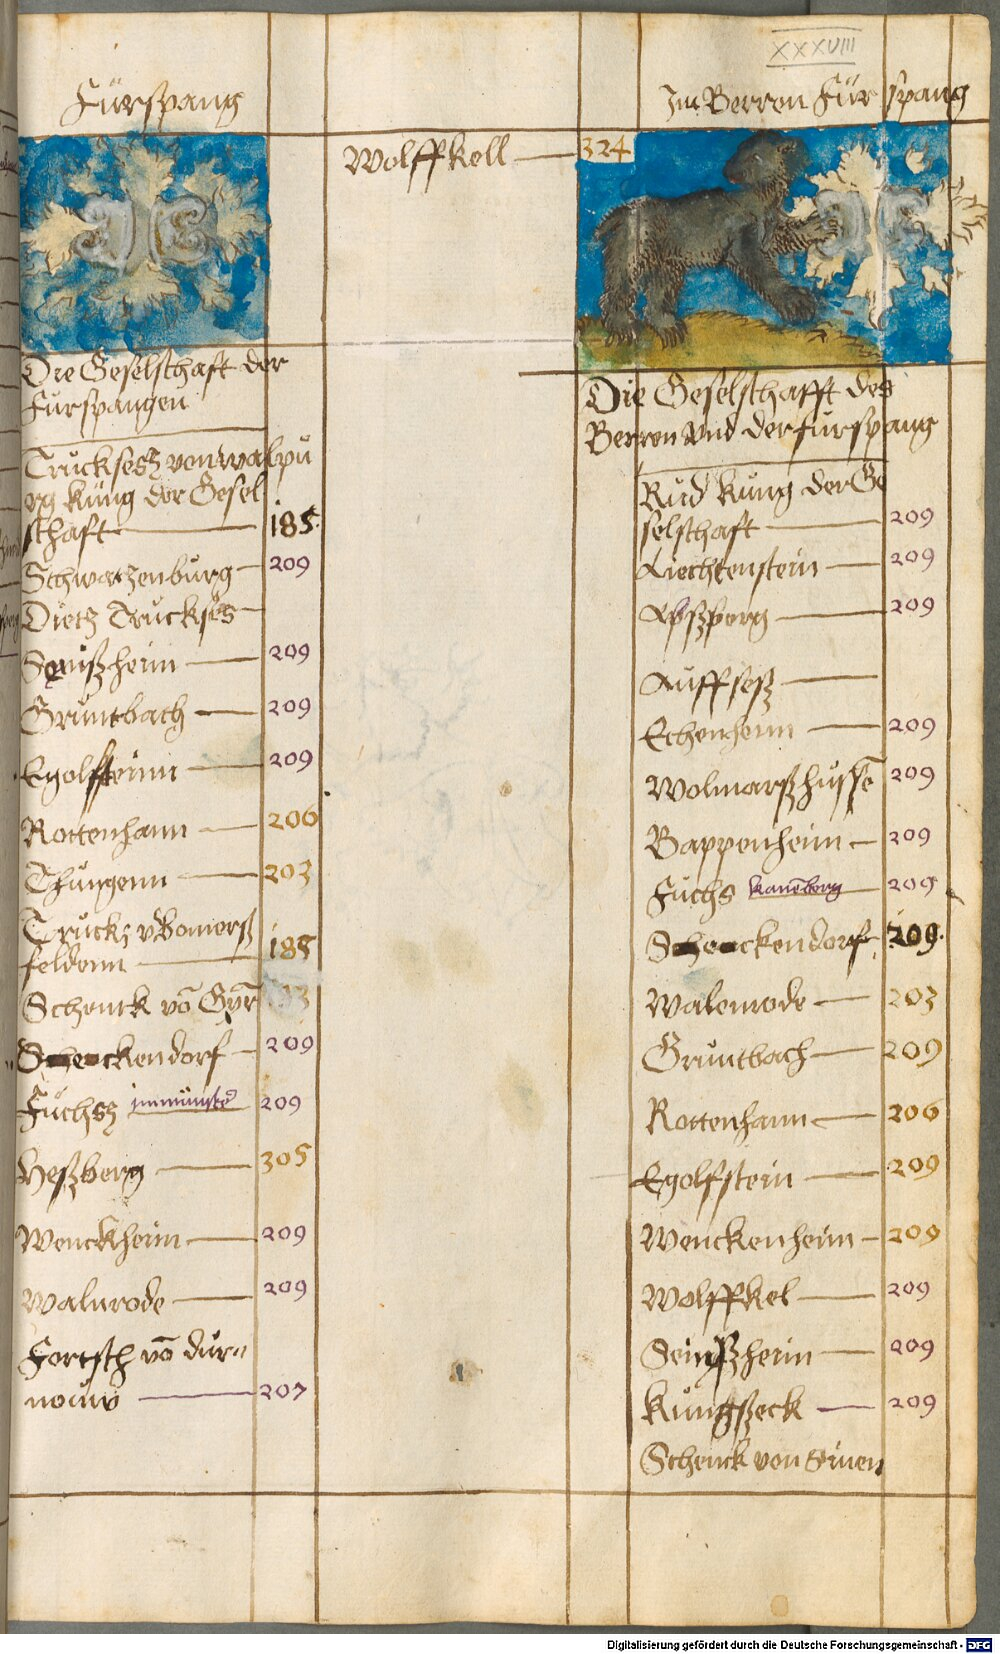 XXXVIII
Fürspang
Die Geselschaft der
Fürspangen
Trucksesz von walpu
rg Küng der Gesel
schaft 185
Schwarzenburg 209
Dietz Truckses
Seinßheim 209
Gruntbach 209
Egolffteinn 209
Rottenhann 206
Thungenn 203
Trucks vBomerß
feldenn 185
Schenck vō
Scheuckendorf 209
Füchsz 209
Heßberg 305
Wenckheim 209
Walnrode 209
Fortsch vō dur=
nouw 207
Wolffkell 324
Im Berren Fürspang
Die Geselschafft des
Berren und der fürspang
Rud Kung der Ge
selschaft 209
Liechtenstein 209
Apßperg 209
Auffseß
Echenheim 209
Wolmarßhussē 209
Bappenheim 209
Fuchs 209
Scheuckendorf 209
Walemrode 203
Gruntbach 209
Rottenhann 206
Egolfstein 209
Wenckenheim 209
Wolffkel 209
Seinßheim 209
Kungßeck 209
Schenck von
Digitalisierung gefördert durch die Deutsche Forschungsgemeinschaft - DFG